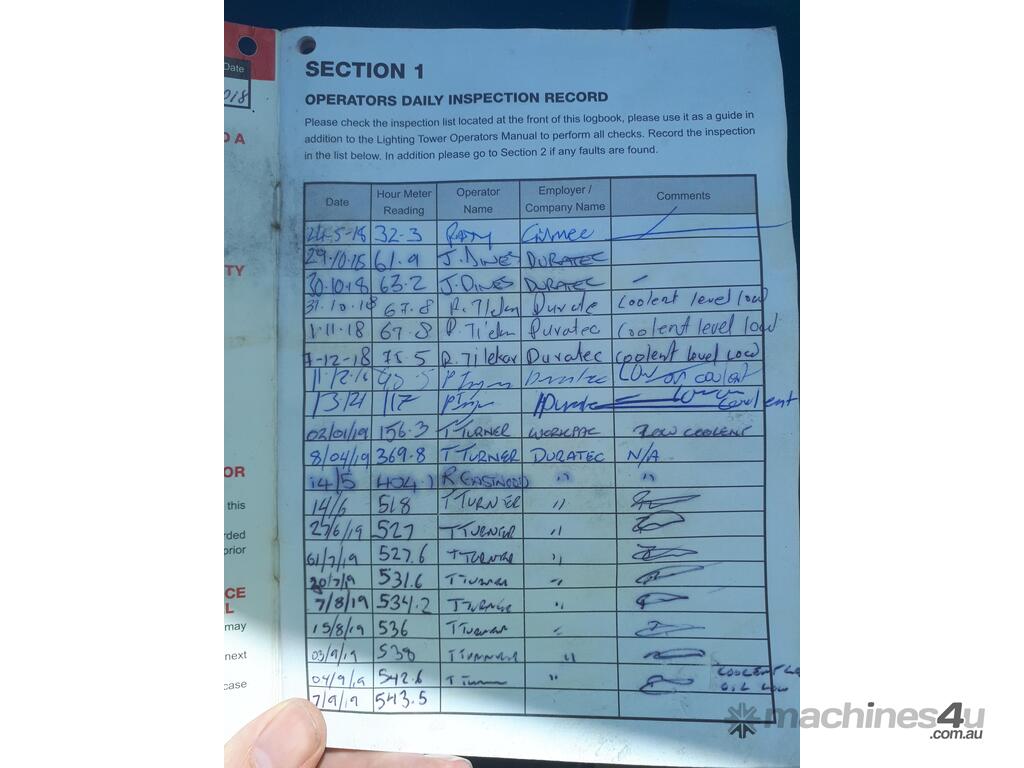 Date
018
D A
TY
OR
this
rded
prior
CE
L
may
next
case
SECTION 1
OPERATORS DAILY INSPECTION RECORD
Please check the inspection list located at the front of this logbook, please use it as a guide in
addition to the Lighting Tower Operators Manual to perform all checks. Record the inspection
in the list below. In addition please go to Section 2 if any faults are found.
Date Hour Meter Reading Operator Name Employer / Company Name Comments
24-5-18 32-3
29.10.18 61.9 J. DINES DURATEC
30.10.18 63.2 J. DINES DURATEC
31.10.18 67.8 Coolent level low
1.11.18 67.8 Duratec Coolent level low
7-12-18 75.5 R. Tilekar Duratec Coolent level low
Low on coolent
117
02/01/19 156.3 T TURNER WORKPAC LOW COOLENT
8/04/19 369.8 T TURNER DURATEC N/A
14/5 404.1 R " "
14/6 518 T TURNER "
27/6/19 527 T TURNER "
01/7/19 527.6 T TURNER "
20/7/19 531.6 T TURNER "
7/8/19 534.2 T TURNER "
15/8/19 536 T TURNER "
03/9/19 538 T TURNER "
04/9/19 542.6 T "
OIL LOW
7/9/19 543.5
machines4u
.com.au